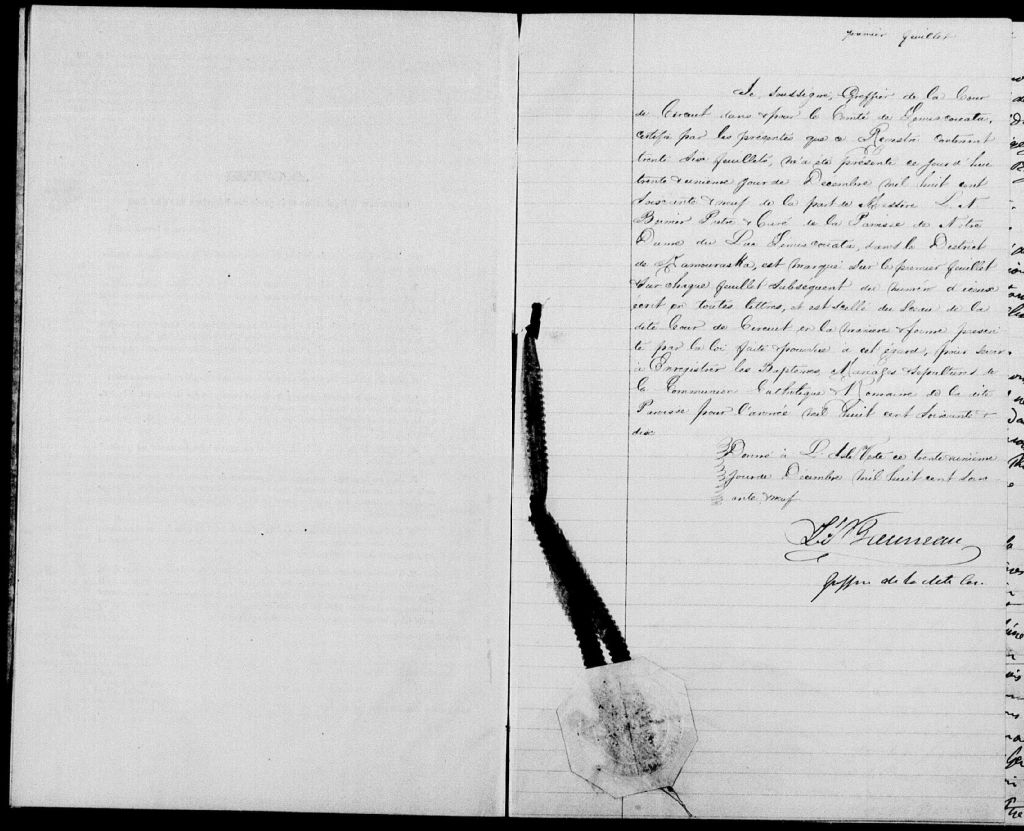 premier feuillet
Je, soussigné, Greffier de la Cour
de Circuit dans & pour le Comté de Temiscouata,
certifie par les présentés que ce Registre contenant
trente six feuillets, m'a été présenté ce jour d'hui
trente & unieme jour de Décembre mil huit cent
soixante & neuf de la part de Messire L. N.
Bernier Pretre & Curé de la Paroisse de Notre
Dame du Lac Temiscouata, dans le District
de Kamouraska, est marqué sur le premier feuillet
& sur chaque feuillet subsequent du numero d'iceux
écrit en toutes lettres, et est scellé du Sceau de la
dite Cour de Circuit en la maniere & forme prescri
te par la loi faite & pourvue à cet égard, pour servir
à Enregistrer les Baptemes, Mariages & Sepultures de
la Communion Catholique & Romaine de la dite
Paroisse pour l'année mil huit cent soixante &
dix
Donné à L'Isle Verte ce trente unieme
jour de Décembre mil huit cent soix-
ante & neuf
Greffier de la dite Cour.